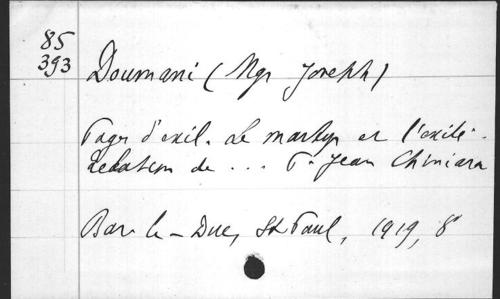 85
393
Doumani (Mgr Joseph)
Pages d'exil. Le martyr et l'exilé.
Relation de ... P. Jean Chiniara
Bar-le-Duc, St Paul, 1919, 8°